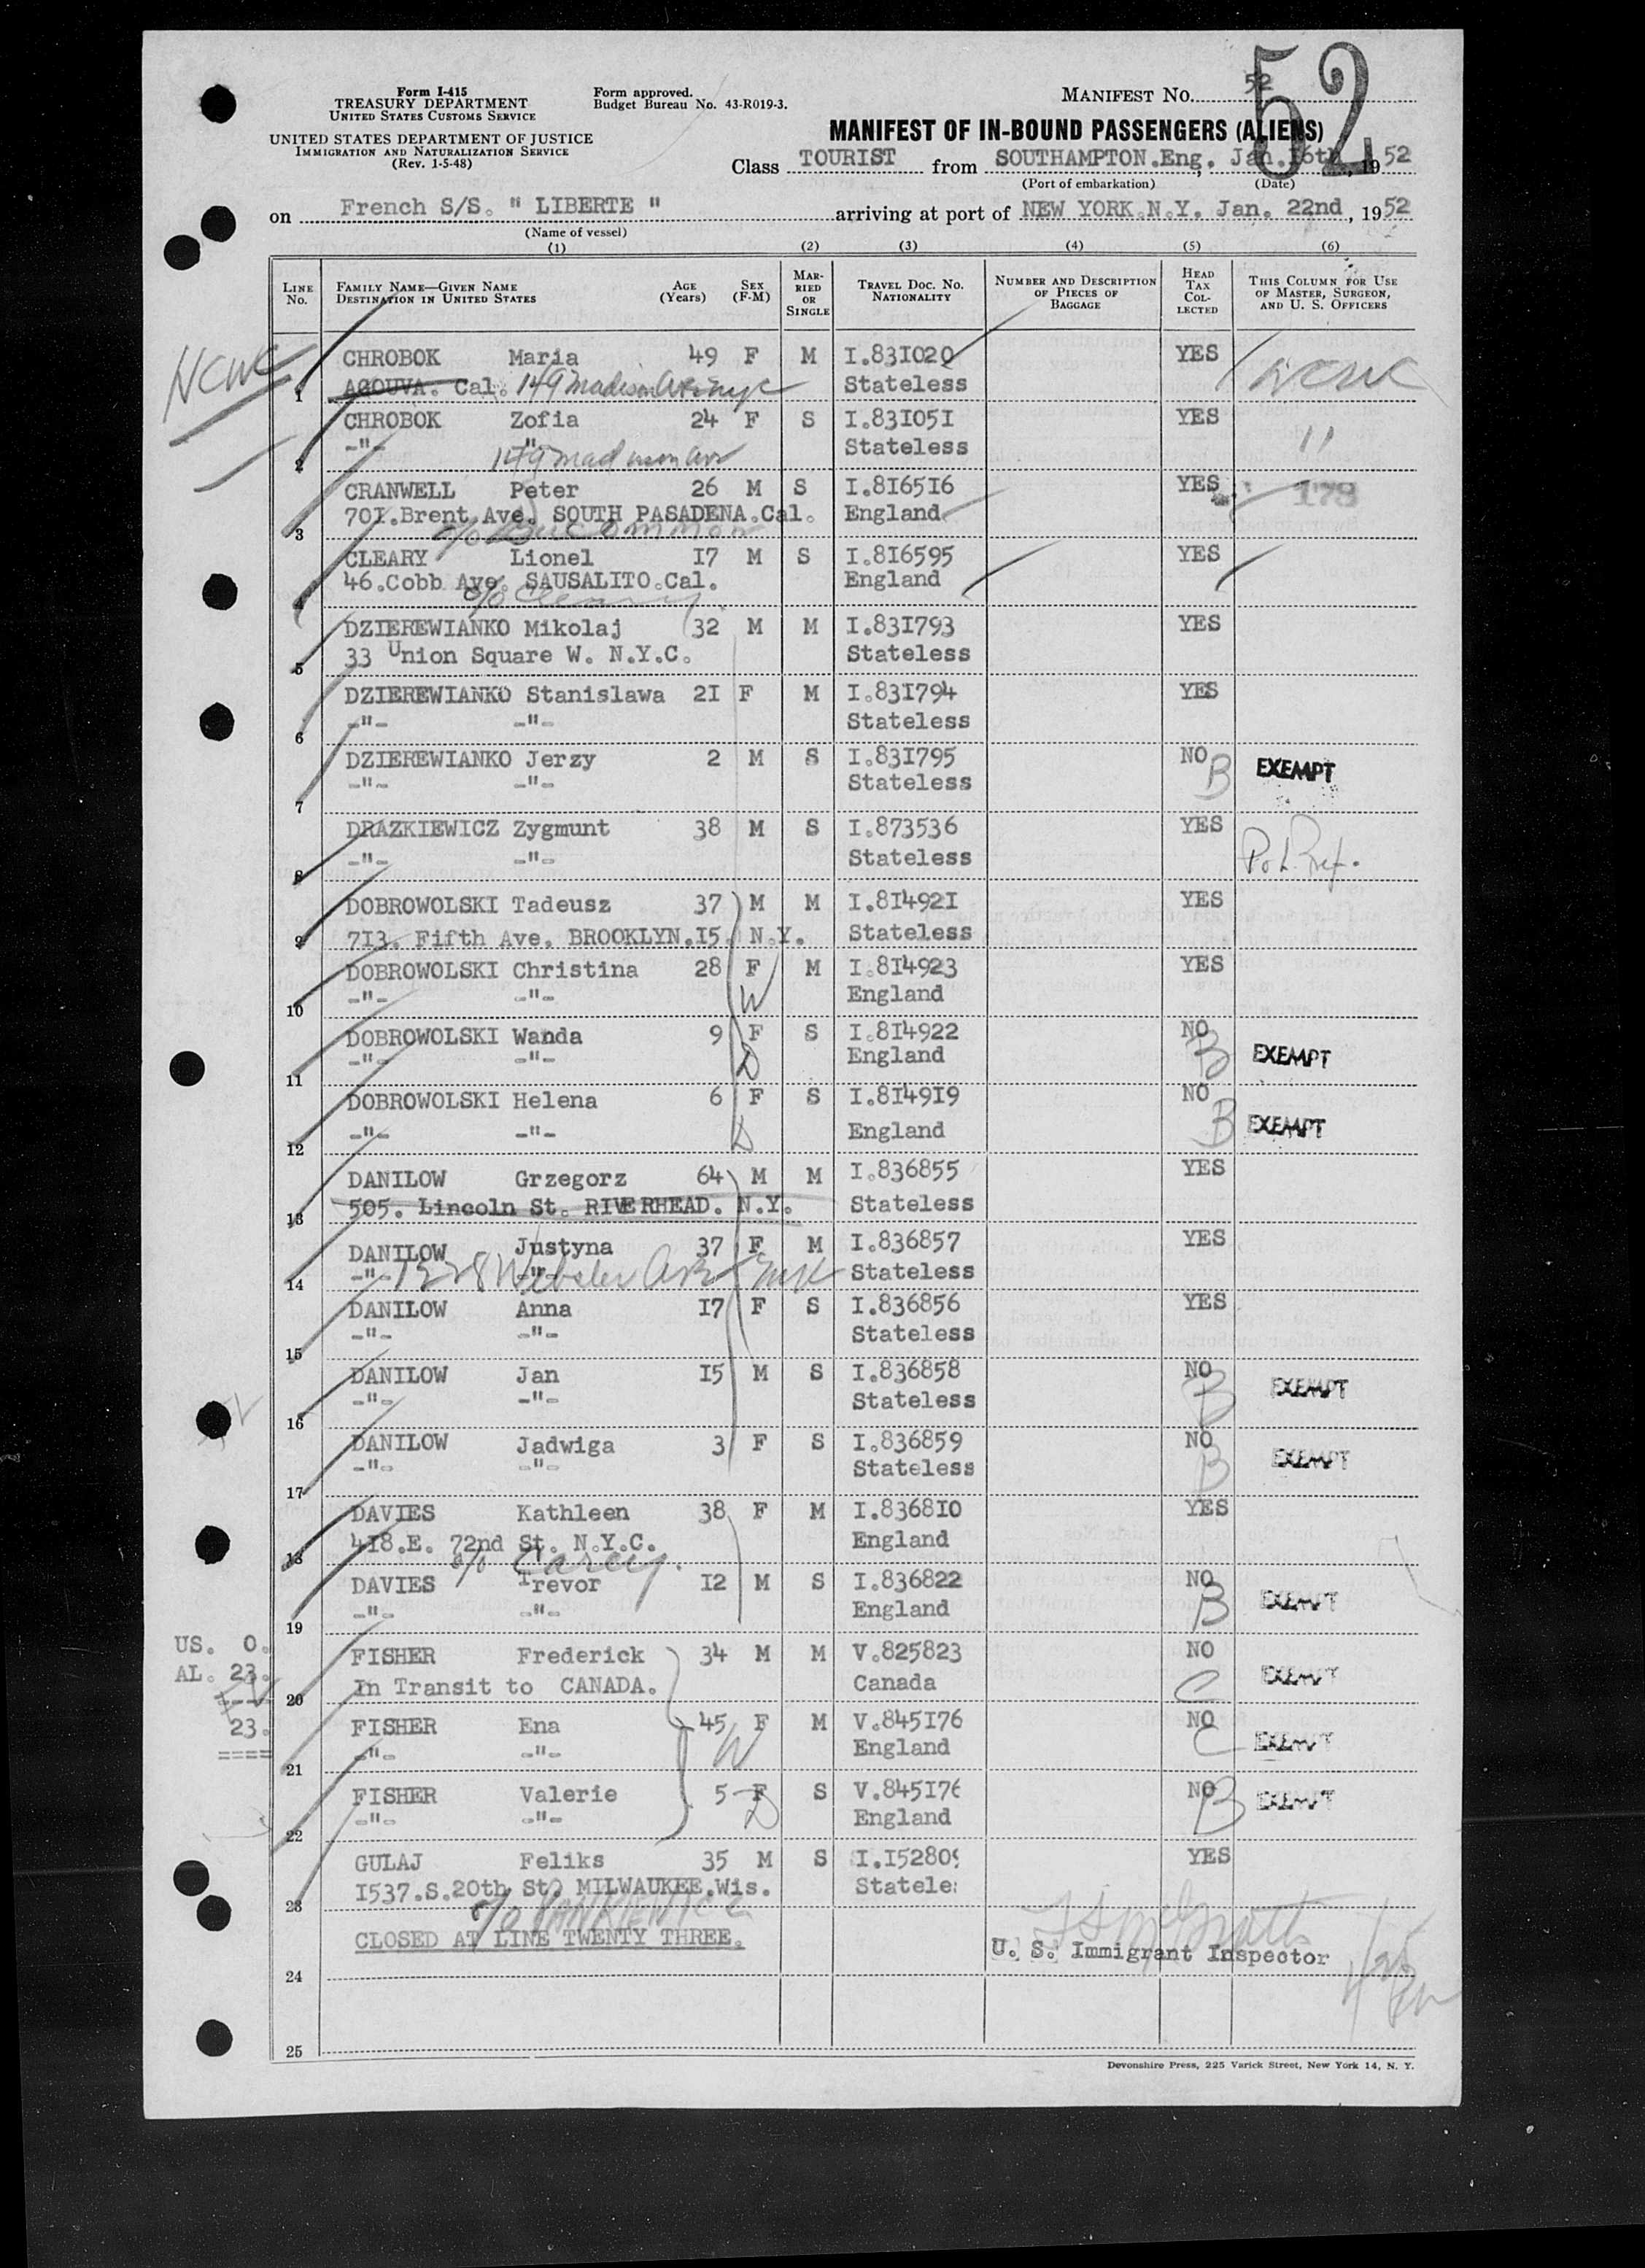 52
Form I-415
TREASURY DEPARTMENT
UNITED STATES CUSTOMS SERVICE
UNITED STATES DEPARTMENT OF JUSTICE
IMMIGRATION AND NATURALIZATION SERVICE
(Rev. 1-5-48)
Form approved.
Budget Bureau No. 43-R019-3.
MANIFEST NO. 52
MANIFEST OF IN-BOUND PASSENGERS (ALIENS)
Class TOURIST from SOUTHAMPTON.Eng. Jan.16th, 1952
(Port of embarkation) (Date)
on French S/S. " LIBERTE " arriving at port of NEW YORK.N.Y. Jan. 22nd, 1952
(Name of vessel)
(1) (2) (3) (4) (5) (6)
LINE No. FAMILY NAME—GIVEN NAME DESTINATION IN UNITED STATES AGE (Years) SEX (F-M) MARRIED OR SINGLE TRAVEL DOC. NO. NATIONALITY NUMBER AND DESCRIPTION OF PIECES OF BAGGAGE HEAD TAX COLLECTED THIS COLUMN FOR USE OF MASTER, SURGEON, AND U. S. OFFICERS
NCWC
CHROBOK Maria 49 F M I.831020 YES NCWC
1 AGOUVA. Cal. 149 Madison Ave nyc Stateless
CHROBOK Zofia 24 F S I.831051 YES "
2 -"- " 149 Madison Ave Stateless
CRANWELL Peter 26 M S I.816516 YES 178
3 701.Brent Ave. SOUTH PASADENA.Cal. England
c/o Bucommon
CLEARY Lionel 17 M S I.816595 YES
4 46.Cobb Ave. SAUSALITO.Cal. England
c/o Cleary
DZIEREWIANKO Mikolaj 32 M M I.831793 YES
5 33 Union Square W. N.Y.C. Stateless
DZIEREWIANKO Stanislawa 21 F M I.831794 YES
6 -"- -"- Stateless
DZIEREWIANKO Jerzy 2 M S I.831795 NO B EXEMPT
7 -"- -"- Stateless
DRAZKIEWICZ Zygmunt 38 M S I.873536 YES
8 -"- -"- Stateless Pol. Ref.
DOBROWOLSKI Tadeusz 37 M M I.814921 YES
9 713. Fifth Ave. BROOKLYN.15. N.Y. Stateless
DOBROWOLSKI Christina 28 F M I.814923 YES
10 -"- -"- W England
DOBROWOLSKI Wanda 9 F S I.814922 NO B EXEMPT
11 -"- -"- D England
DOBROWOLSKI Helena 6 F S I.814919 NO B EXEMPT
12 -"- -"- D England
DANILOW Grzegorz 64 M M I.836855 YES
13 505. Lincoln St. RIVERHEAD. N.Y. Stateless
DANILOW Justyna 37 F M I.836857 YES
14 -"- -"- 1328 Webster Ave Stateless
DANILOW Anna 17 F S I.836856 YES
15 -"- -"- Stateless
DANILOW Jan 15 M S I.836858 NO B EXEMPT
16 -"- -"- Stateless
DANILOW Jadwiga 3 F S I.836859 NO B EXEMPT
17 -"- -"- Stateless
DAVIES Kathleen 38 F M I.836810 YES
18 418.E. 72nd St. N.Y.C. England
c/o Carey.
DAVIES Trevor 12 M S I.836822 NO B EXEMPT
19 -"- -"- England
US. 0.
AL. 23.
----
23.
====
FISHER Frederick 34 M M V.825823 NO C EXEMPT
20 In Transit to CANADA. Canada
FISHER Ena 45 F M V.845176 NO C EXEMPT
21 -"- -"- W England
FISHER Valerie 5 F S V.845176 NO B EXEMPT
22 -"- -"- D England
GULAJ Feliks 35 M S I.152809 YES
23 1537.S.20th St. MILWAUKEE.Wis. Statele
c/o PANKIEWICZ
CLOSED AT LINE TWENTY THREE.
U. S. Immigrant Inspector
24
25
Devonshire Press, 225 Varick Street, New York 14, N. Y.